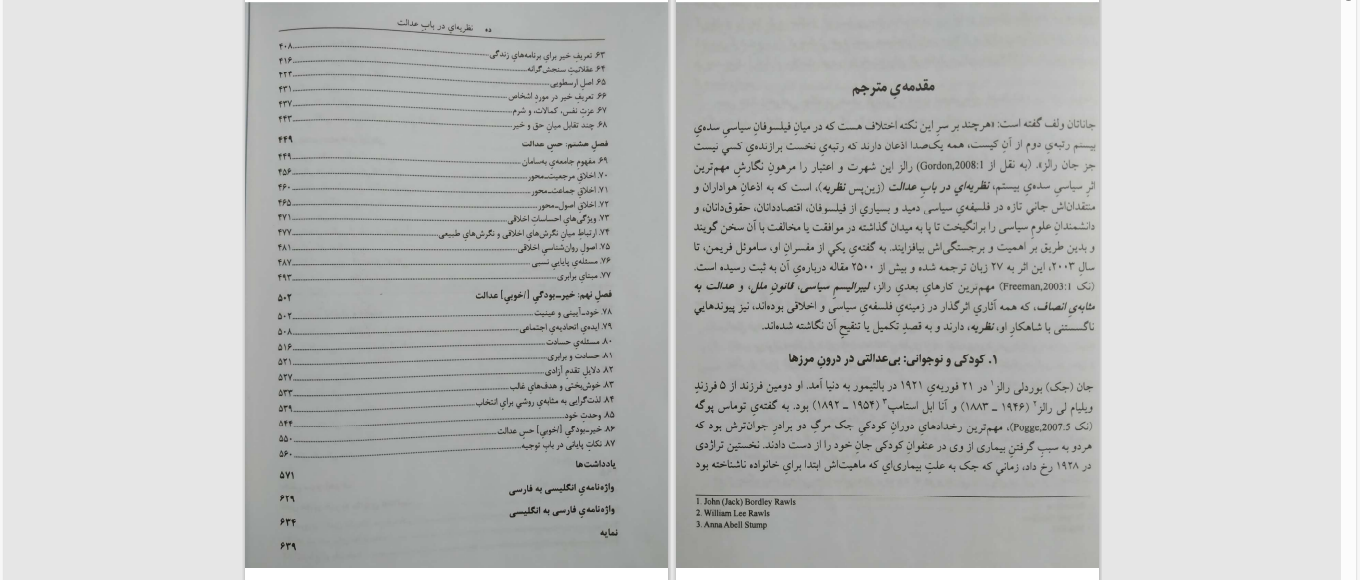 ده    نظریه‌ای در بابِ عدالت
۶۳. تعریفِ خیر برای برنامه‌هایِ زندگی ۴۰۸
۶۴. عقلانیتِ سنجش‌گرانه ۴۱۶
۶۵. اصلِ ارسطویی ۴۲۳
۶۶. تعریفِ خیر در موردِ اشخاص ۴۳۱
۶۷. عزتِ نفس، کمالات، و شرم ۴۳۷
۶۸. چند تقابل میانِ حق و خیر ۴۴۳
فصلِ هشتم: حسِ عدالت ۴۴۹
۶۹. مفهومِ جامعه‌یِ به‌سامان ۴۴۹
۷۰. اخلاقِ مرجعیت‌ـمحور ۴۵۶
۷۱. اخلاقِ جماعت‌ـمحور ۴۶۰
۷۲. اخلاقِ اصول‌ـمحور ۴۶۵
۷۳. ویژگی‌هایِ احساساتِ اخلاقی ۴۷۱
۷۴. ارتباطِ میانِ نگرش‌هایِ اخلاقی و نگرش‌هایِ طبیعی ۴۷۷
۷۵. اصولِ روان‌شناسیِ اخلاقی ۴۸۱
۷۶. مسئله‌یِ پایاییِ نسبی ۴۸۷
۷۷. مبنایِ برابری ۴۹۳
فصلِ نهم: خیر‌ـبودگیِ [/خوبیِ] عدالت ۵۰۲
۷۸. خود‌ـآیینی و عینیت ۵۰۲
۷۹. ایده‌یِ اتحادیه‌یِ اجتماعی ۵۰۸
۸۰. مسئله‌یِ حسادت ۵۱۶
۸۱. حسادت و برابری ۵۲۱
۸۲. دلایلِ تقدمِ آزادی ۵۲۷
۸۳. خوش‌بختی و هدف‌هایِ غالب ۵۳۳
۸۴. لذت‌گرایی به مثابه‌یِ روشی برای انتخاب ۵۳۹
۸۵. وحدتِ خود ۵۴۴
۸۶. خیر‌ـبودگیِ [/خوبیِ] حسِ عدالت ۵۵۰
۸۷. نکاتِ پایانی در بابِ توجیه ۵۶۰
یادداشت‌ها ۵۷۱
واژه‌نامه‌یِ انگلیسی به فارسی ۶۲۹
واژه‌نامه‌یِ فارسی به انگلیسی ۶۳۴
نمایه ۶۳۹
مقدمه‌یِ مترجم
جاناتان ولف گفته است: «هرچند بر سرِ این نکته اختلاف هست که در میانِ فیلسوفانِ سیاسیِ سده‌یِ
بیستم رتبه‌یِ دوم از آنِ کیست، همه یک‌صدا اذعان دارند که رتبه‌یِ نخست برازنده‌یِ کسی نیست
جز جان رالز». (به نقل از Gordon,2008:1) رالز این شهرت و اعتبار را مرهونِ نگارشِ مهم‌ترین
اثرِ سیاسیِ سده‌یِ بیستم، نظریه‌ای در بابِ عدالت (زین‌پس نظریه)، است که به اذعانِ هواداران و
منتقدان‌اش جانی تازه در فلسفه‌یِ سیاسی دمید و بسیاری از فیلسوفان، اقتصاددانان، حقوق‌دانان، و
دانشمندانِ علومِ سیاسی را برانگیخت تا پا به میدان گذاشته در موافقت یا مخالفت با آن سخن گویند
و بدین طریق بر اهمیت و برجستگی‌اش بیافزایند. به گفته‌یِ یکی از مفسرانِ او، ساموئل فریمن، تا
سالِ ۲۰۰۳، این اثر به ۲۷ زبان ترجمه شده و بیش از ۲۵۰۰ مقاله درباره‌یِ آن به ثبت رسیده است.
(نک Freeman,2003:1) مهم‌ترین کارهایِ بعدیِ رالز، لیبرالیسمِ سیاسی، قانونِ ملل، و عدالت به
مثابه‌یِ انصاف، که همه آثاری اثرگذار در زمینه‌یِ فلسفه‌یِ سیاسی و اخلاقی بوده‌اند، نیز پیوندهایی
ناگسستنی با شاهکارِ او، نظریه، دارند و به قصدِ تکمیل یا تنقیحِ آن نگاشته شده‌اند.
۱. کودکی و نوجوانی: بی‌عدالتی در درونِ مرزها
جان (جک) بوردلی رالز۱ در ۲۱ فوریه‌یِ ۱۹۲۱ در بالتیمور به دنیا آمد. او دومین فرزند از ۵ فرزندِ
ویلیام لی رالز۲ (۱۹۴۶ ـ ۱۸۸۳) و آنا ابل استامپ۳ (۱۹۵۴ ـ ۱۸۹۲) بود. به گفته‌یِ توماس پوگه
(نک Pogge,2007:5)، مهم‌ترین رخدادهایِ دورانِ کودکیِ جک مرگِ دو برادرِ جوان‌ترش بود که
هردو به سببِ گرفتنِ بیماری از وی در عنفوانِ کودکی جانِ خود را از دست دادند. نخستین تراژدی
در ۱۹۲۸ رخ داد، زمانی که جک به علتِ بیماری‌ای که ماهیت‌اش ابتدا برایِ خانواده ناشناخته بود
1. John (Jack) Bordley Rawls
2. William Lee Rawls
3. Anna Abell Stump